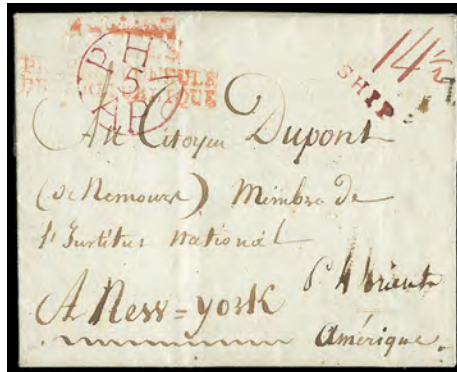 PHI
5
AP
SHIP
14½
Au Citoyen Dupont
(de Nemours) Membre de
l'Institut national
A New=york
Amérique.